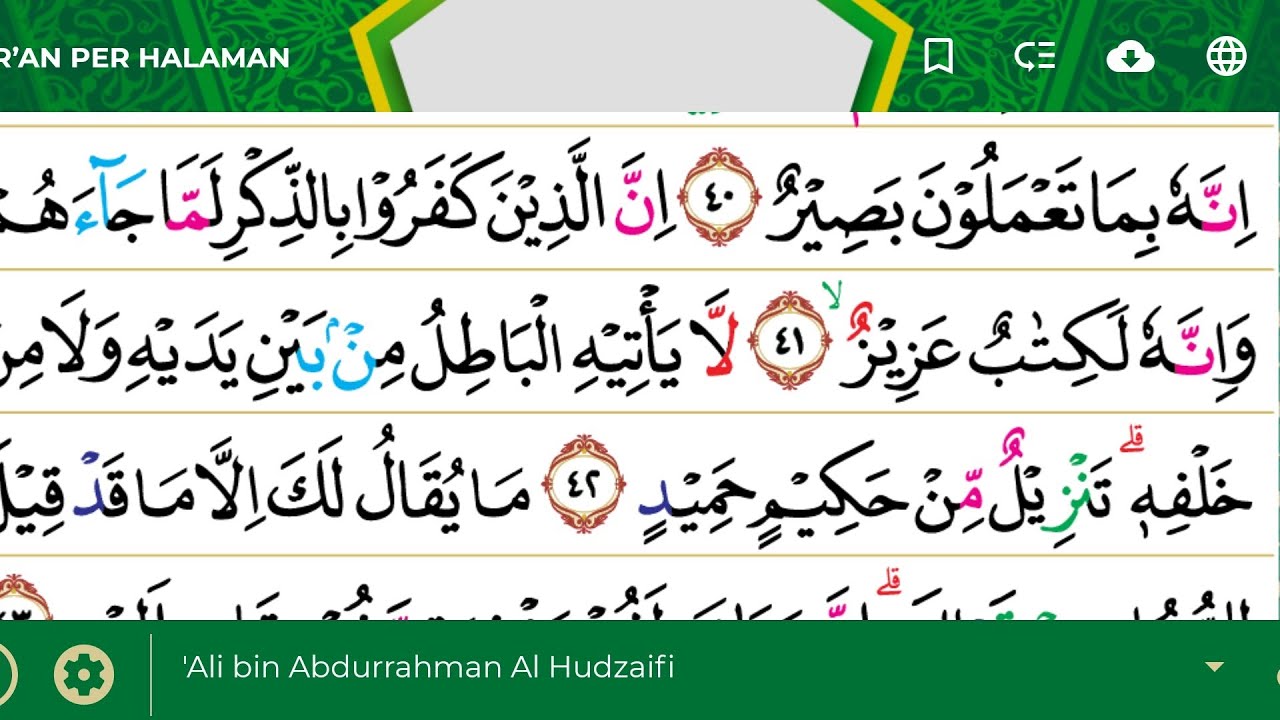 R'AN PER HALAMAN
اِنَّهٗ بِمَا تَعْمَلُوْنَ بَصِيْرٌ ٤٠ اِنَّ الَّذِيْنَ كَفَرُوْا بِالذِّكْرِ لَمَّا جَاۤءَهُمْ
وَاِنَّهٗ لَكِتٰبٌ عَزِيْزٌ ۙ ٤١ لَّا يَأْتِيْهِ الْبَاطِلُ مِنْۢ بَيْنِ يَدَيْهِ وَلَا مِنْ
خَلْفِهٖ ۗ تَنْزِيْلٌ مِّنْ حَكِيْمٍ حَمِيْدٍ ٤٢ مَا يُقَالُ لَكَ اِلَّا مَا قَدْ قِيْلَ
'Ali bin Abdurrahman Al Hudzaifi